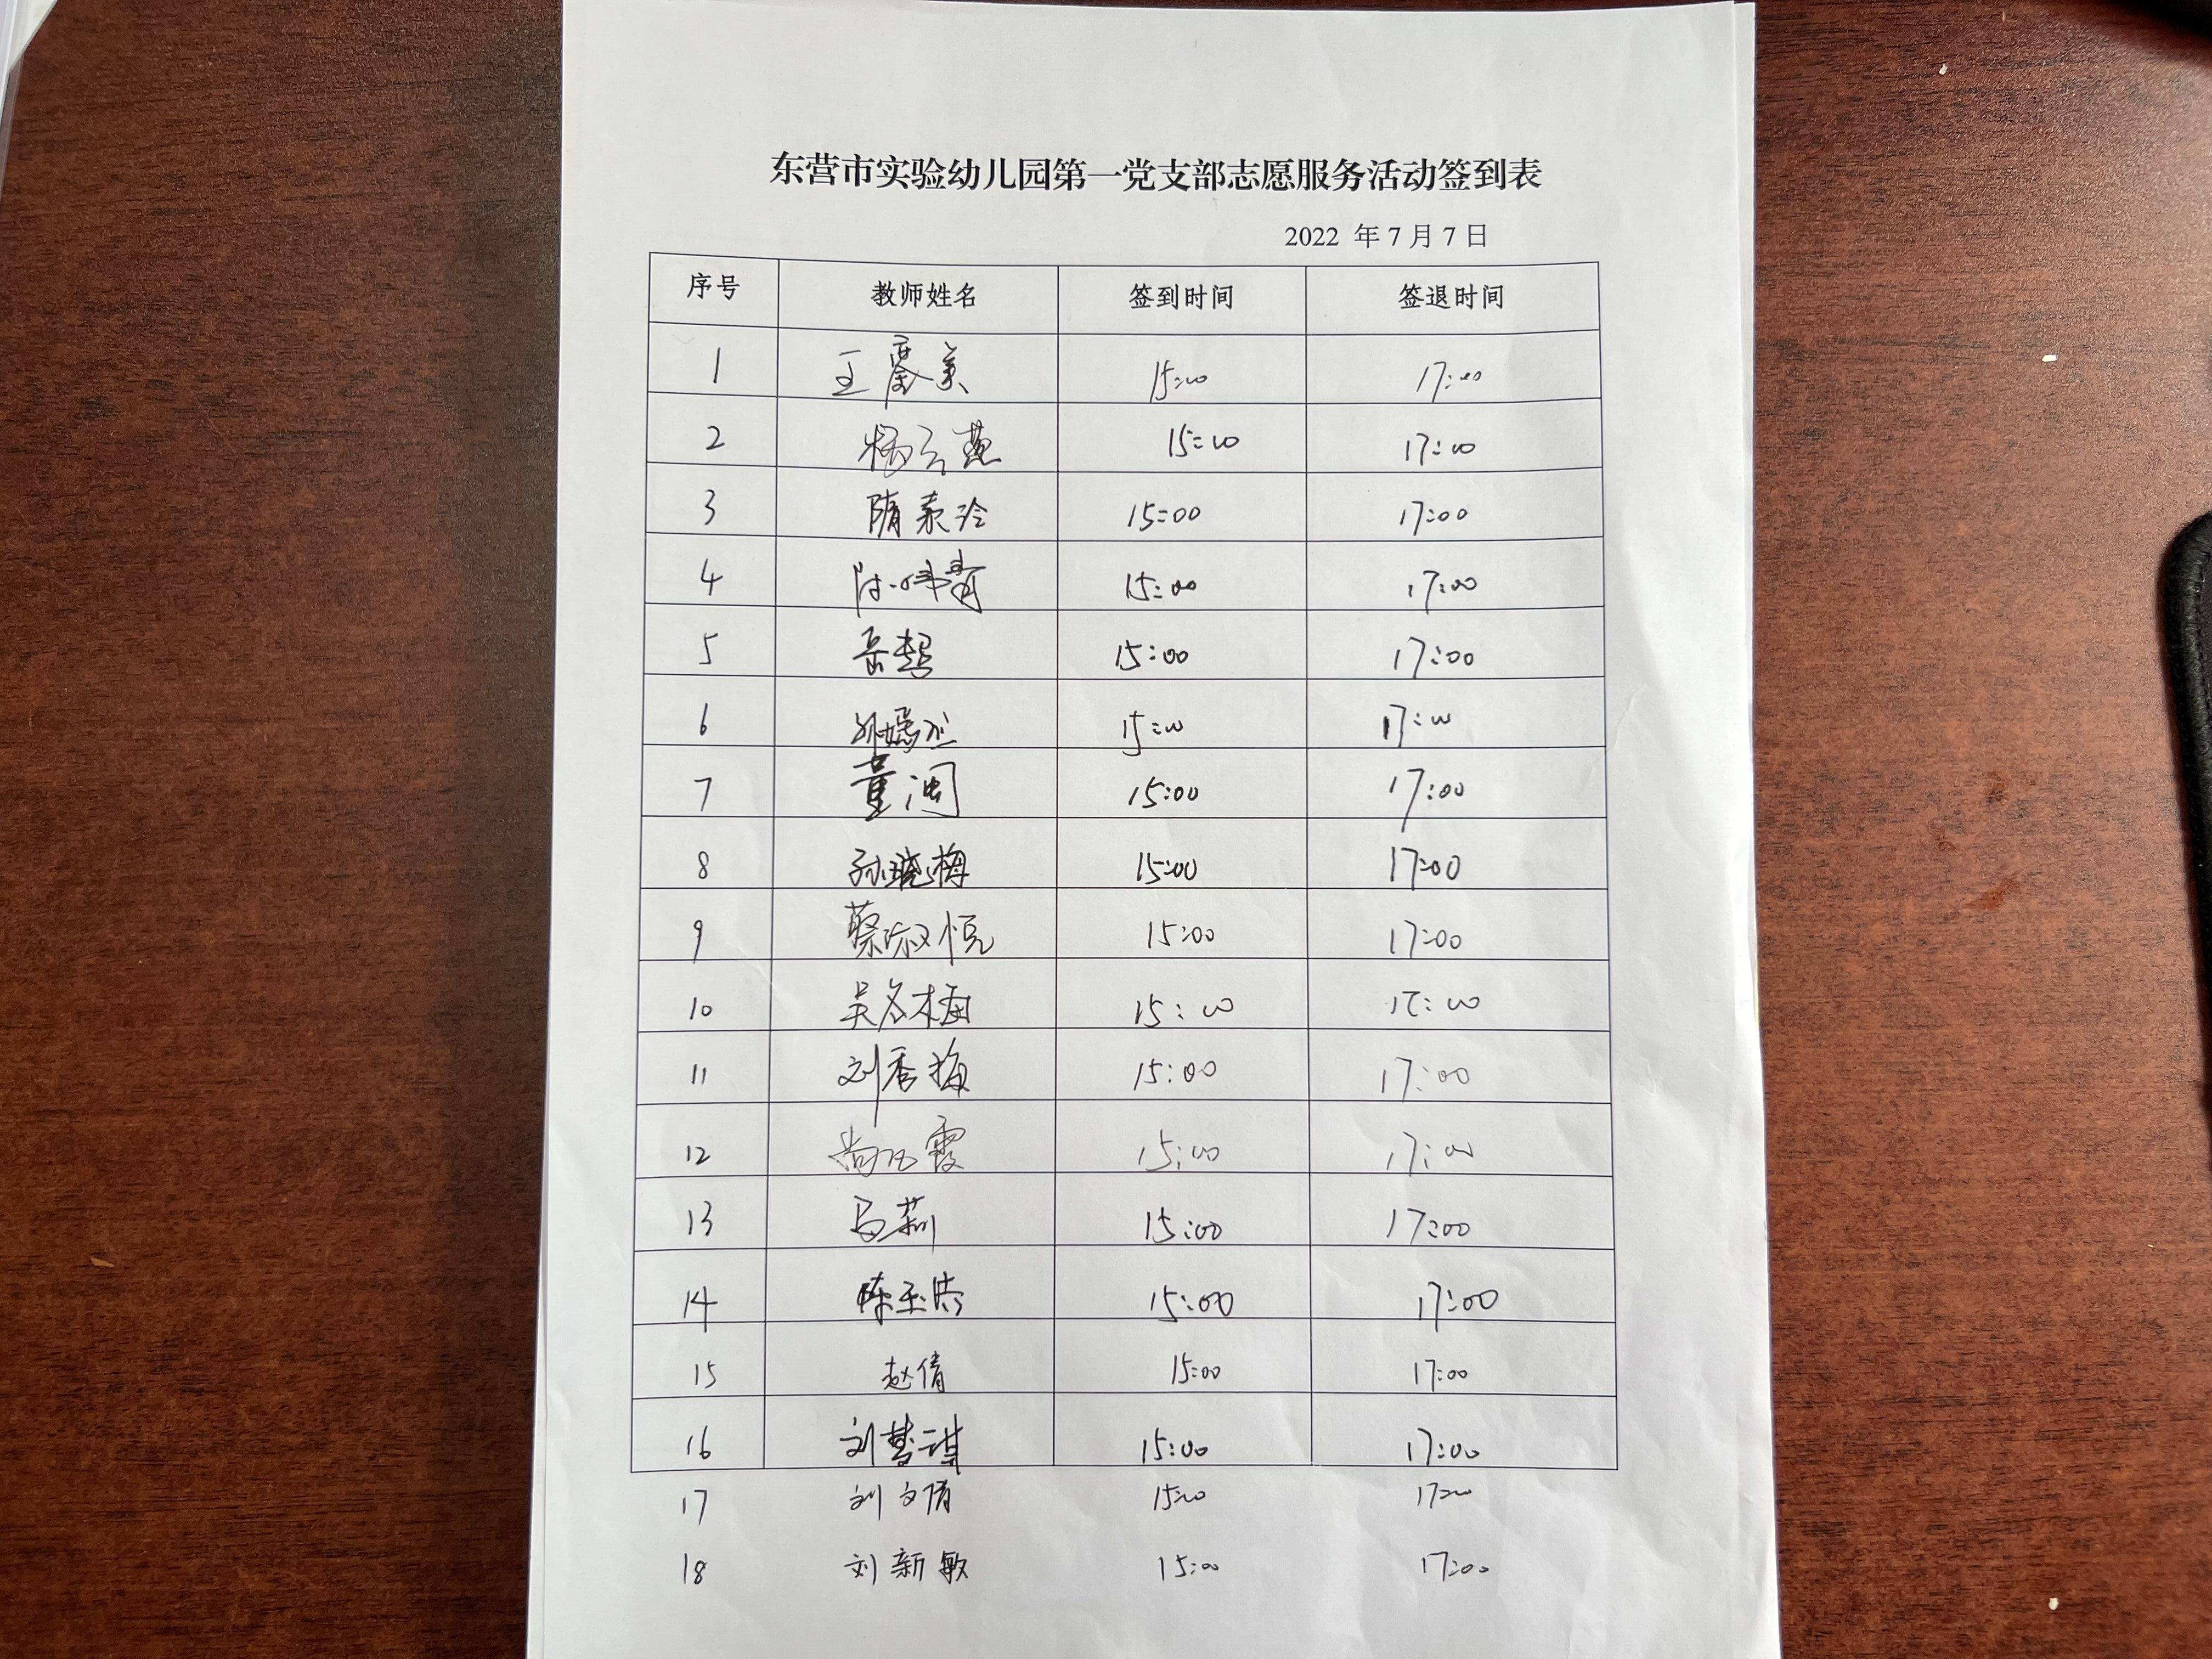 东营市实验幼儿园第一党支部志愿服务活动签到表
2022 年 7 月 7 日
序号 教师姓名 签到时间 签退时间
1 王 美 15:00 17:00
2 杨云燕 15:00 17:00
3 隋素玲 15:00 17:00
4 15:00 17:00
5 岳超 15:00 17:00
6 孙嫣然 15:00 17:00
7 董闽 15:00 17:00
8 孙晓梅 15:00 17:00
9 蔡淑悦 15:00 17:00
10 吴冬梅 15:00 17:00
11 刘秀梅 15:00 17:00
12 尚 霞 15:00 17:00
13 马莉 15:00 17:00
14 陈玉洁 15:00 17:00
15 赵倩 15:00 17:00
16 刘梦琪 15:00 17:00
17 刘文倩 15:00 17:00
18 刘新敏 15:00 17:00